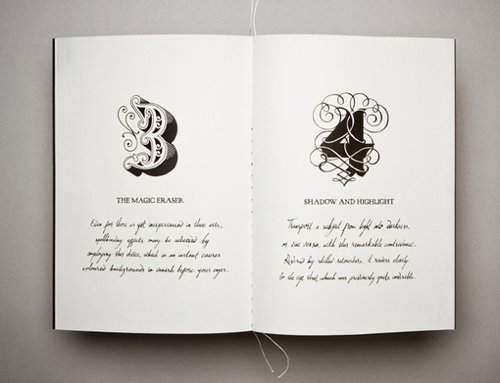 3
THE MAGIC ERASER
Even for those as yet inexperienced in these arts,
spellbinding effects may be achieved by
employing this device, which in an instant causes
coloured backgrounds to vanish before your eyes.
4
SHADOW AND HIGHLIGHT
Transport a subject from light into darkness,
or vice versa, with this remarkable contrivance.
Revered by skilled retouchers, it renders clearly
to the eye that which was previously quite invisible.